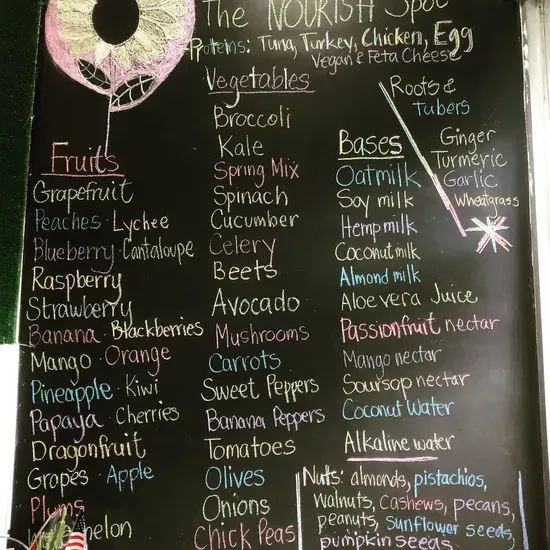 The NOURISH Spot
Proteins: Tuna, Turkey, Chicken, Egg
Vegan & Feta Cheese
Vegetables
Broccoli
Kale
Spring Mix
Spinach
Cucumber
Celery
Beets
Avocado
Mushrooms
Carrots
Sweet Peppers
Banana Peppers
Tomatoes
Olives
Onions
Chick Peas
Fruits
Grapefruit
Peaches · Lychee
Blueberry · Cantaloupe
Raspberry
Strawberry
Banana · Blackberries
Mango · Orange
Pineapple · Kiwi
Papaya · Cherries
Dragonfruit
Grapes · Apple
Plums
Bases
Oatmilk
Soy milk
Hempmilk
Coconut milk
Almond milk
Aloe vera Juice
Passionfruit nectar
Mango nectar
Soursop nectar
Coconut Water
Alkaline water
Roots &
Tubers
Ginger
Turmeric
Garlic
Wheatgrass
Nuts: almonds, pistachios,
Walnuts, Cashews, pecans,
peanuts, Sunflower seeds,
pumpkin seeds